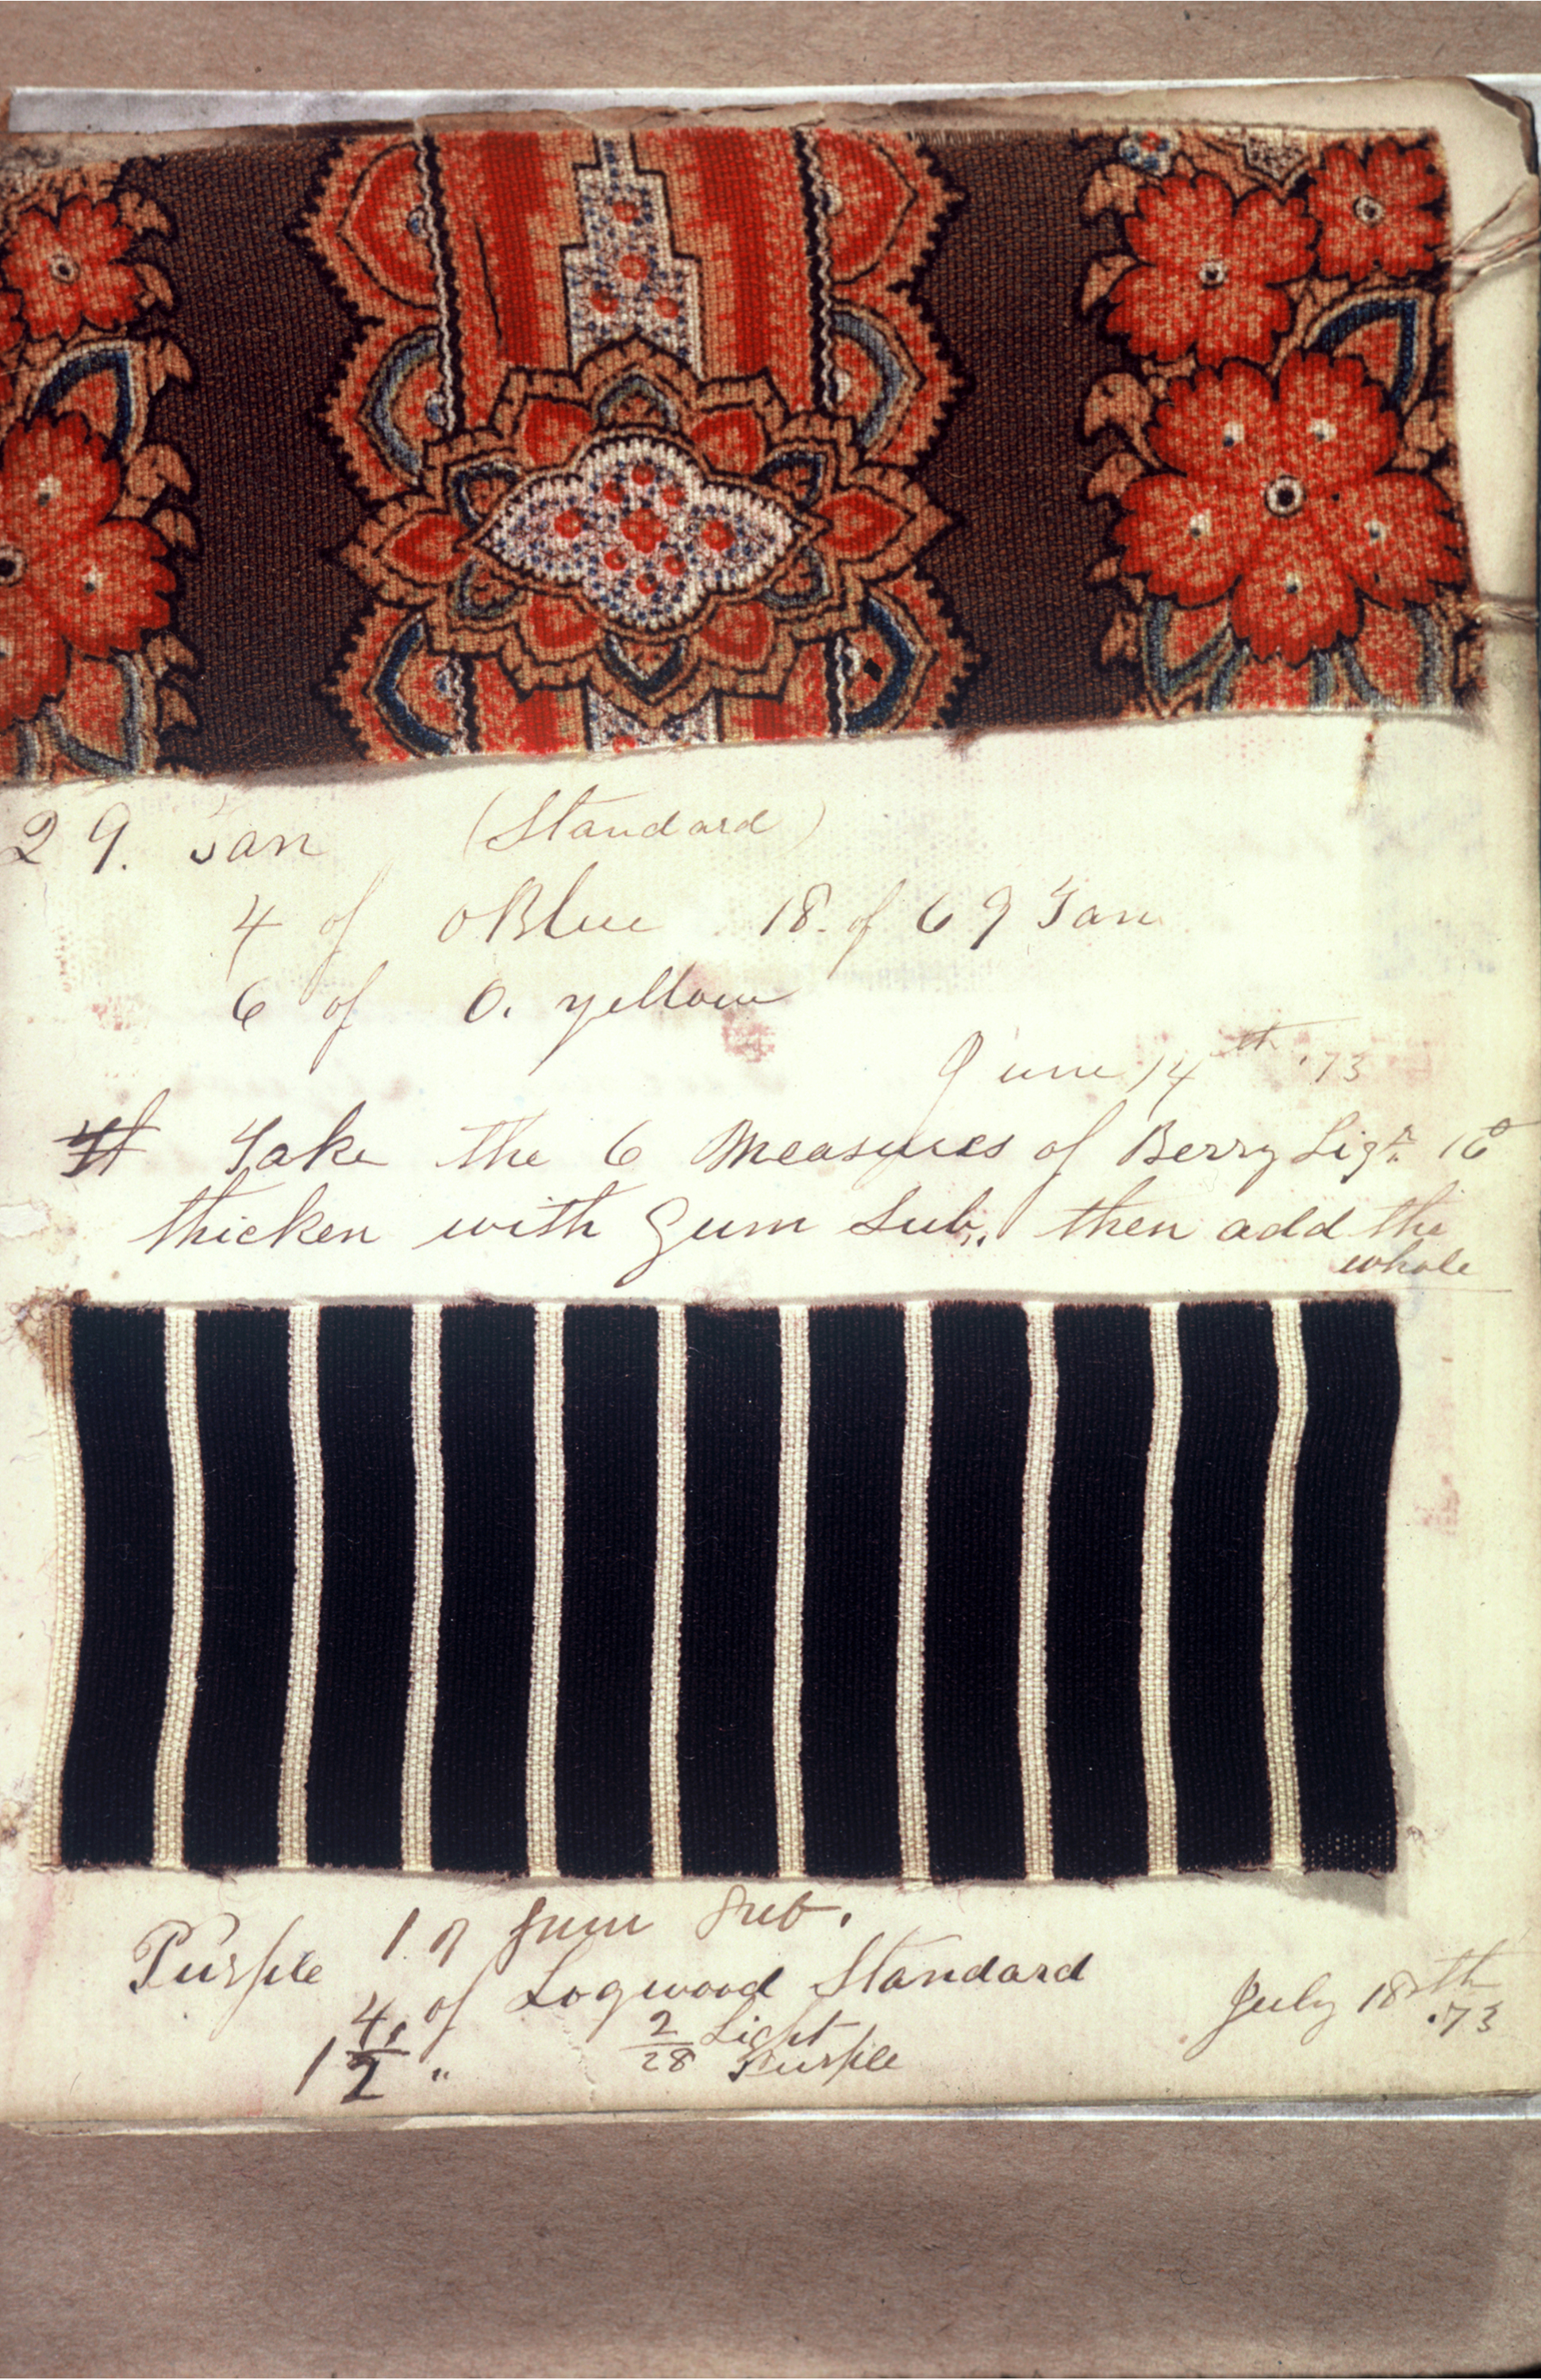 29. Tan (Standard)
4 of OBlue 18. of 69 Tan
6 of O. yellow
June 14th '73
# Take the 6 Measures of Berry Liqr. 16°
thicken with Gum Sub,. then add the
whole
Purple 1 of Gum Sub.
4, of Logwood Standard
1 1/2 " 2/28 Light Purple
July 18th .73